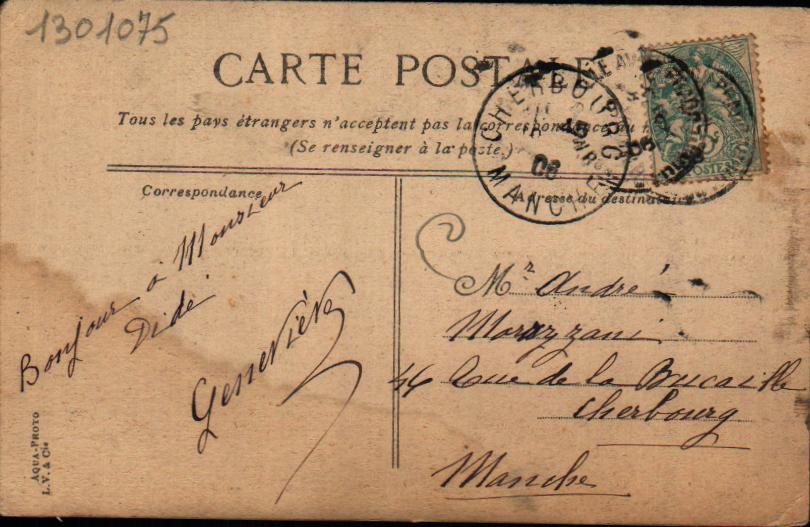 1301075
CARTE POSTALE
Tous les pays étrangers n'acceptent pas la correspondance au
(Se renseigner à la poste.)
CHERBOURG
06
MANCHE
POSTES
Correspondance
Adresse du destinataire
Bonjour à Monsieur
Didé
Geneviève
Mr André
Morazzani
46 Rue de la Bucaille
Cherbourg
Manche
AQUA-PHOTO
L.V. & Cie